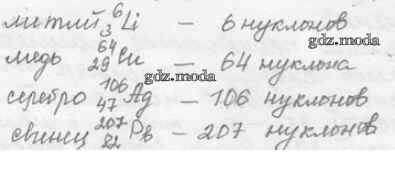 литий ⁶₃Li — 6 нуклонов
gdz.moda
медь ⁶⁴₂₉Cu — 64 нуклона
gdz.moda
серебро ¹⁰⁶₄₇Ag — 106 нуклонов
свинец ²⁰⁷₈₂Pb — 207 нуклонов
gdz.moda